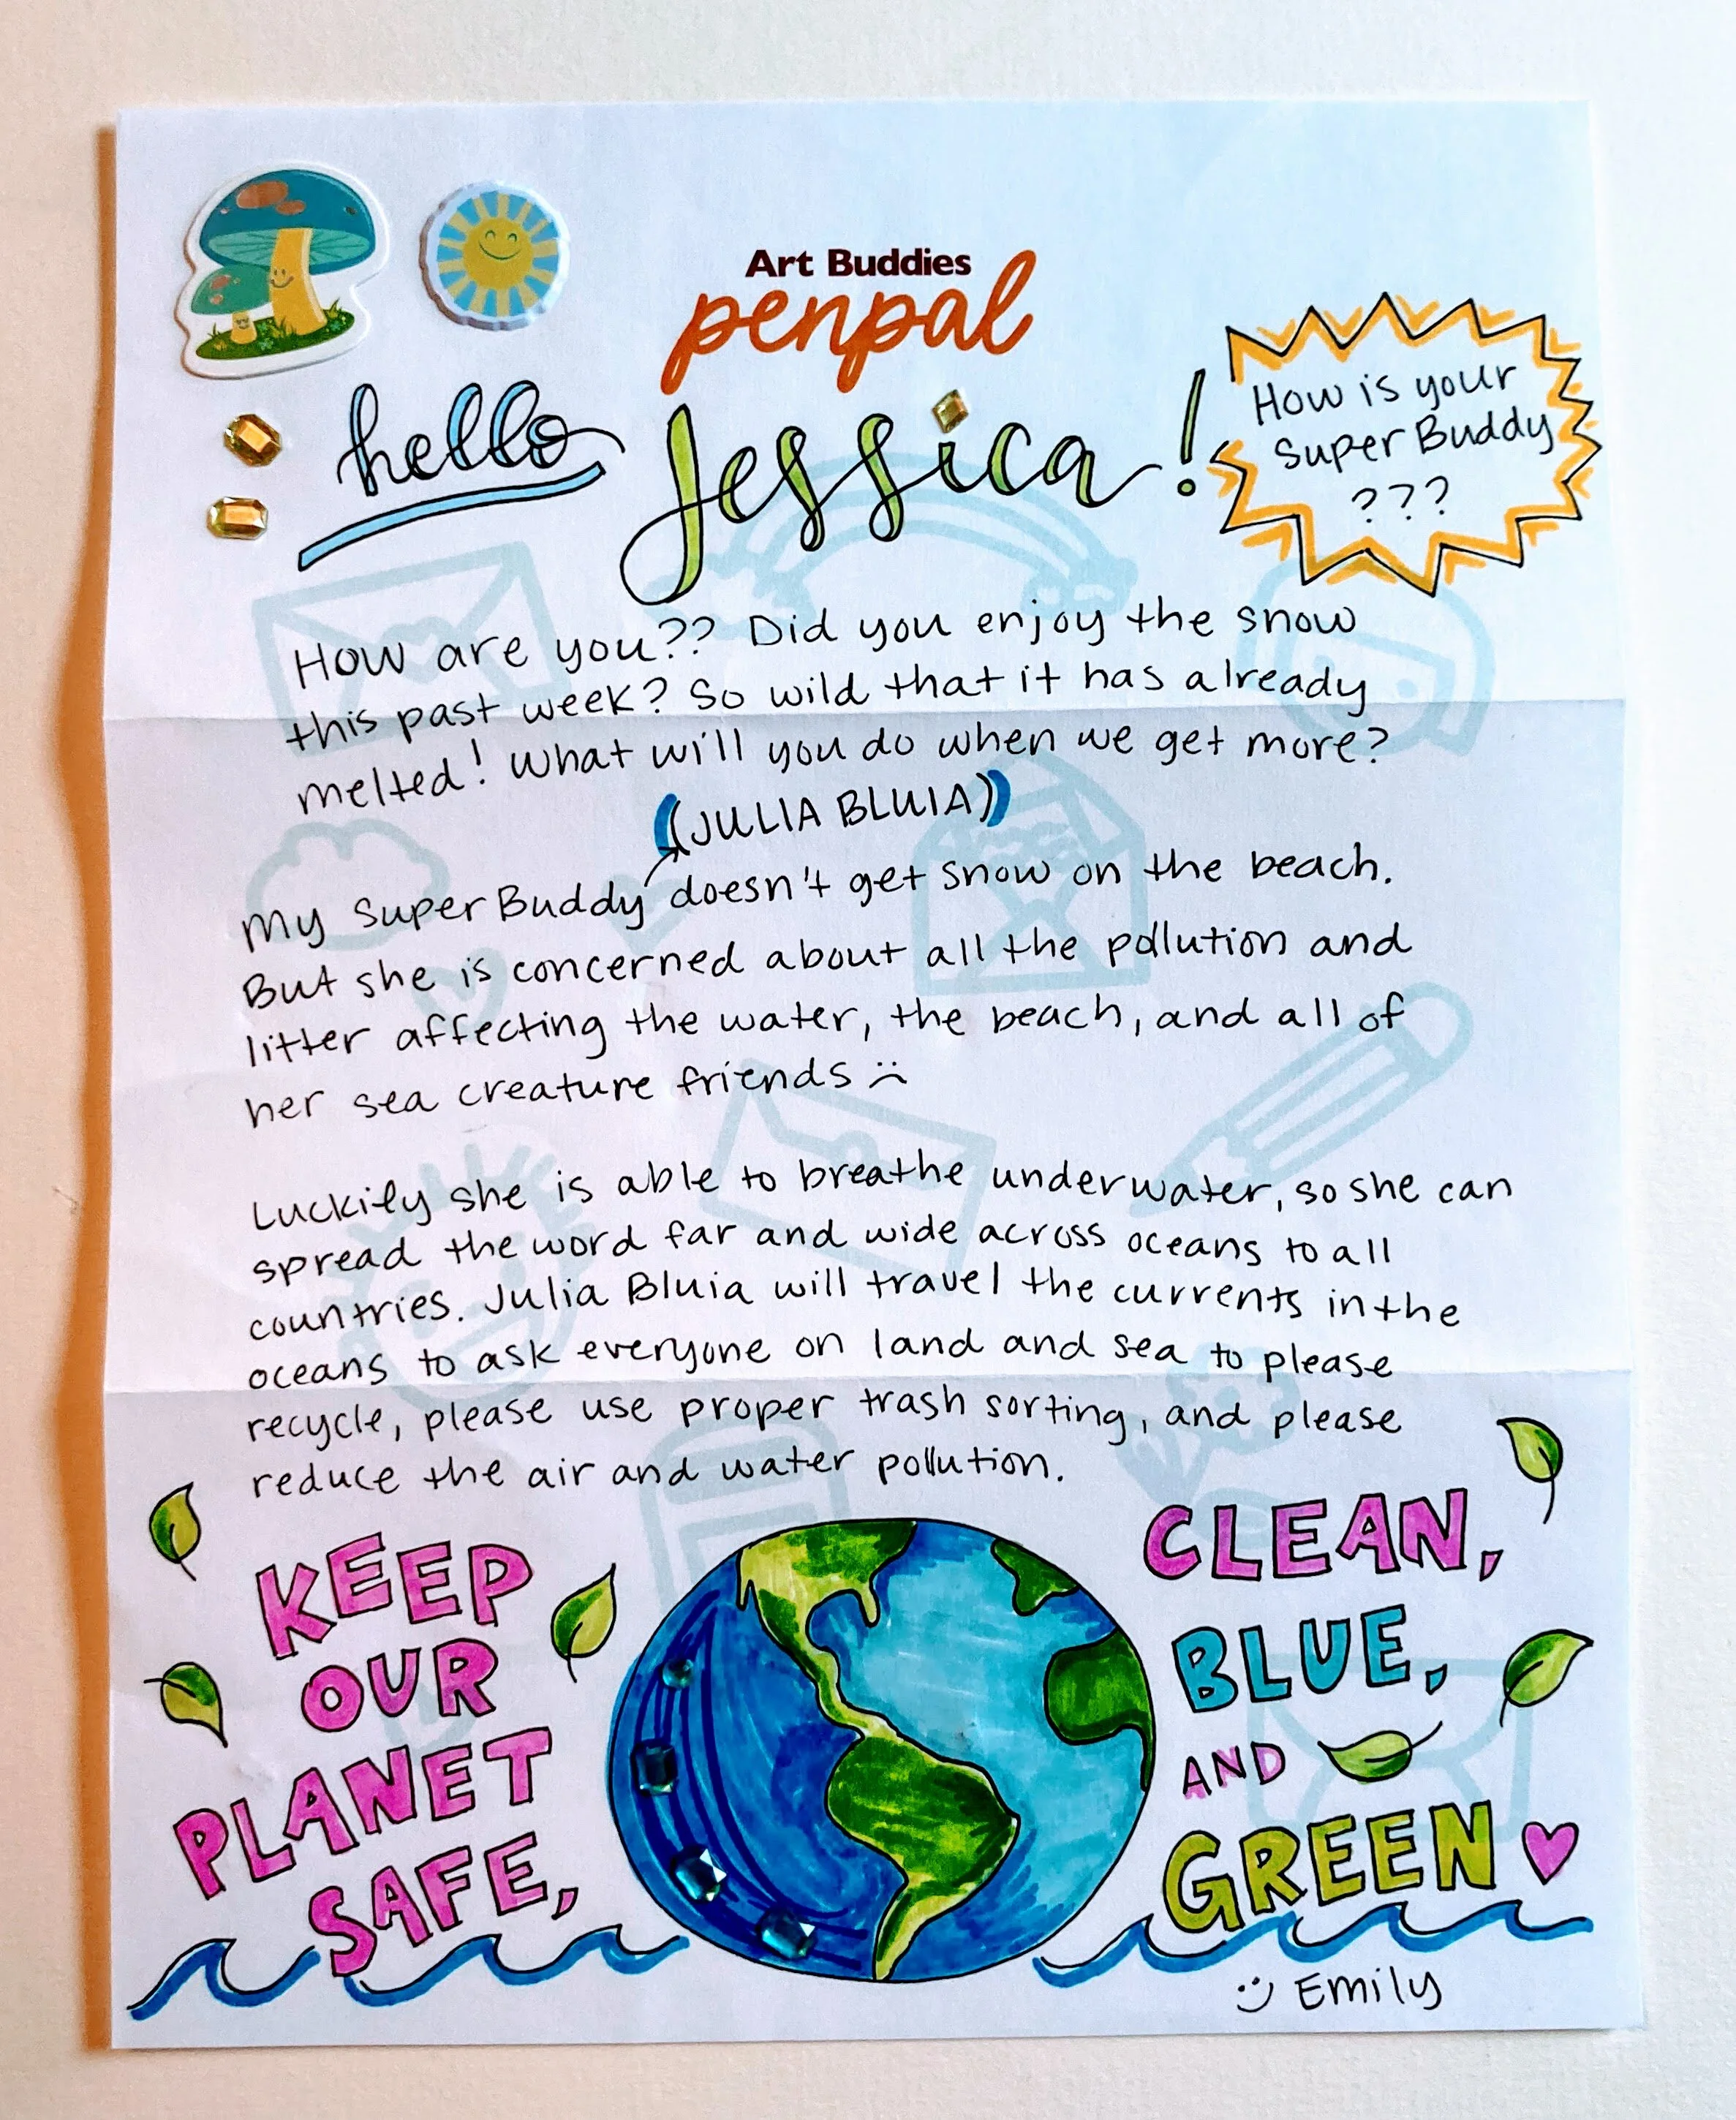 Art Buddies
penpal
hello Jessica!
How is your
Super Buddy
???
How are you?? Did you enjoy the snow
this past week? So wild that it has already
melted! What will you do when we get more?
(JULIA BLUIA)
My Super Buddy doesn't get snow on the beach.
But she is concerned about all the pollution and
litter affecting the water, the beach, and all of
her sea creature friends :(
Luckily she is able to breathe underwater, so she can
spread the word far and wide across oceans to all
countries. Julia Bluia will travel the currents in the
oceans to ask everyone on land and sea to please
recycle, please use proper trash sorting, and please
reduce the air and water pollution.
KEEP
OUR
PLANET
SAFE,
CLEAN,
BLUE,
AND
GREEN
:) Emily